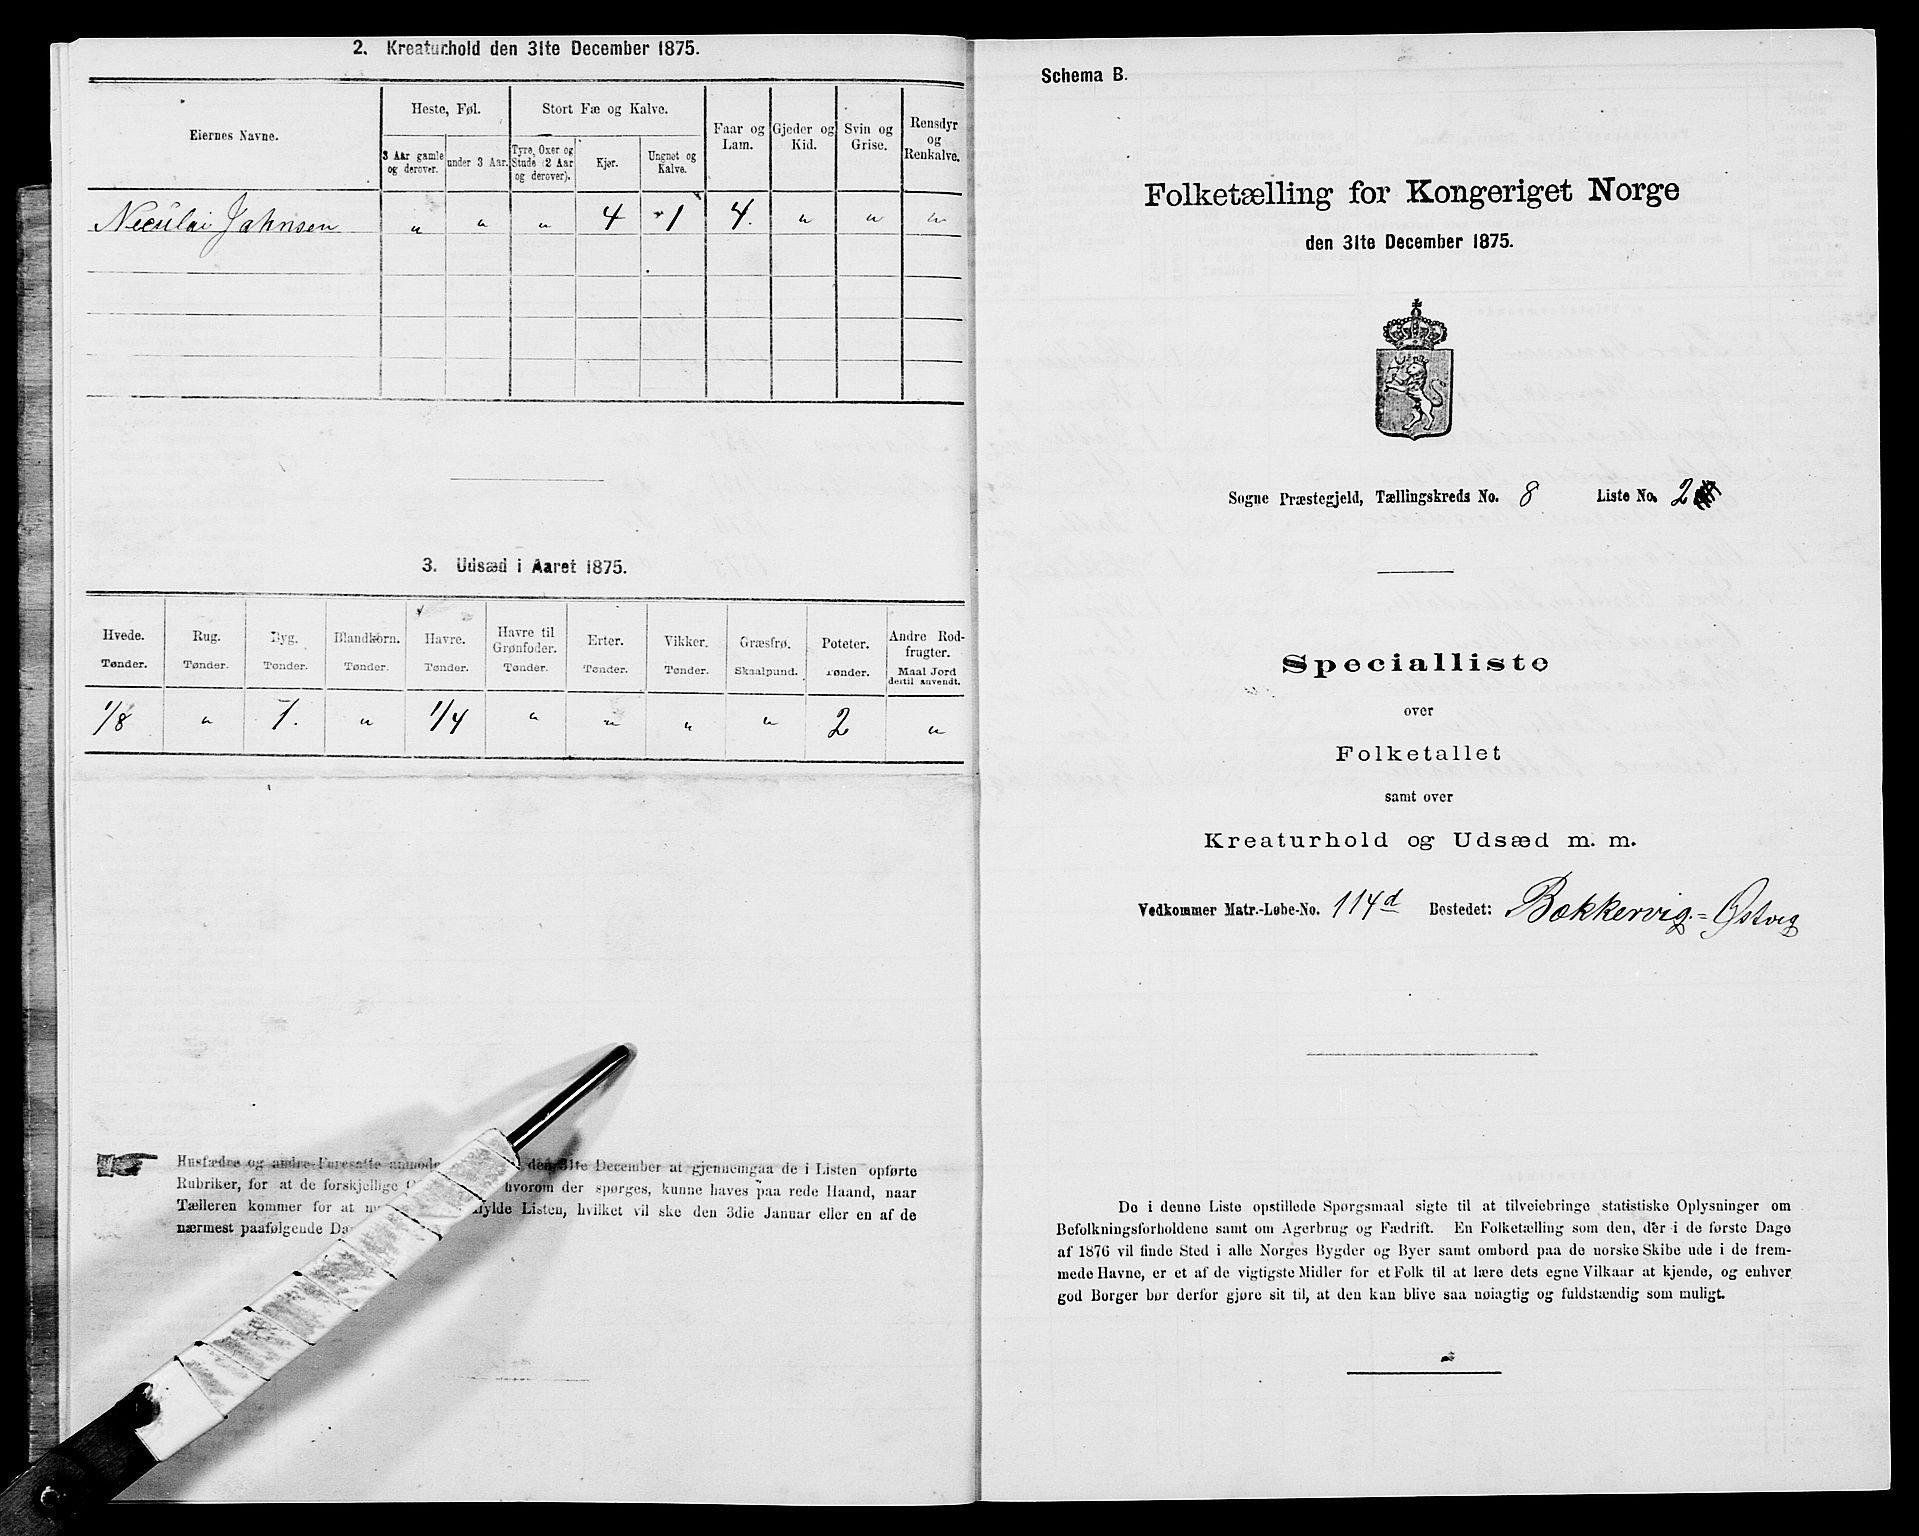 2. Kreaturhold den 31te December 1875.
Eiernes Navne.
Heste, Føl.
Stort Fæ og Kalve.
Faar og Lam.
Gjeder og Kid.
Svin og Grise.
Rensdyr og Renkalve.
3 Aar gamle og derover.
under 3 Aar.
Tyre, Oxer og Stude (2 Aar og derover).
Kjør.
Ungnet og Kalve.
Neculai Johnsen " " " 4 1 4. " " "
3. Udsæd i Aaret 1875.
Hvede. Rug. Byg. Blandkorn. Havre. Havre til Grønfoder. Erter. Vikker. Græsfrø. Poteter. Andre Rodfrugter.
Tønder. Tønder. Tønder. Tønder. Tønder. Tønder. Tønder. Tønder. Skaalpund. Tønder. Maal Jord dertil anvendt.
1/8 " 1. " 1/4 " " " " 2 "
Husfædre og andre Foresatte anmode den 31te December at gjennemgaa de i Listen opførte
Rubriker, for at de forskjellige hvorom der spørges, kunne haves paa rede Haand, naar
Tælleren kommer for at fylde Listen, hvilket vil ske den 3die Januar eller en af de
nærmest paafølgende
Schema B.
Folketælling for Kongeriget Norge
den 31te December 1875.
Sogne Præstegjeld, Tællingskreds No. 8 Liste No. 2
Specialliste
over
Folketallet
samt over
Kreaturhold og Udsæd m. m.
Vedkommer Matr.-Løbe-No. 114d Bostedet: Bækkervig = Østvig
De i denne Liste opstillede Spørgsmaal sigte til at tilveiebringe statistiske Oplysninger om
Befolkningsforholdene samt om Agerbrug og Fædrift. En Folketælling som den, der i de første Dage
af 1876 vil finde Sted i alle Norges Bygder og Byer samt ombord paa de norske Skibe ude i de frem-
mede Havne, er et af de vigtigste Midler for et Folk til at lære dets egne Vilkaar at kjende, og enhver
god Borger bør derfor gjøre sit til, at den kan blive saa nøiagtig og fuldstændig som muligt.